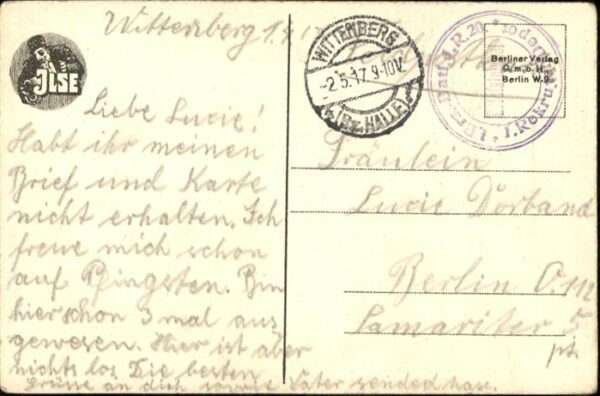 Wittenberg 1.5.17
Feldpost
JLSE
WITTENBERG
-2.5.17.9-10V.
(Bz. HALLE)
Berliner Verlag
G.m.b.H.
Berlin W.9
Batl. J.R. 20.
I. Rekru
Liebe Lucie!
Habt ihr meinen
Brief und Karte
nicht erhalten. Ich
freue mich schon
auf Pfingsten. Bin
hier schon 3 mal aus
gewesen. Hier ist aber
nichts los Die besten
Grüße an dich sowie Vater sended
Fräulein
Lucie Dorband
Berlin O.112
Samariter 5